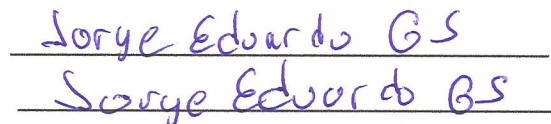 Jorge Eduardo GS
Jorge Eduardo GS